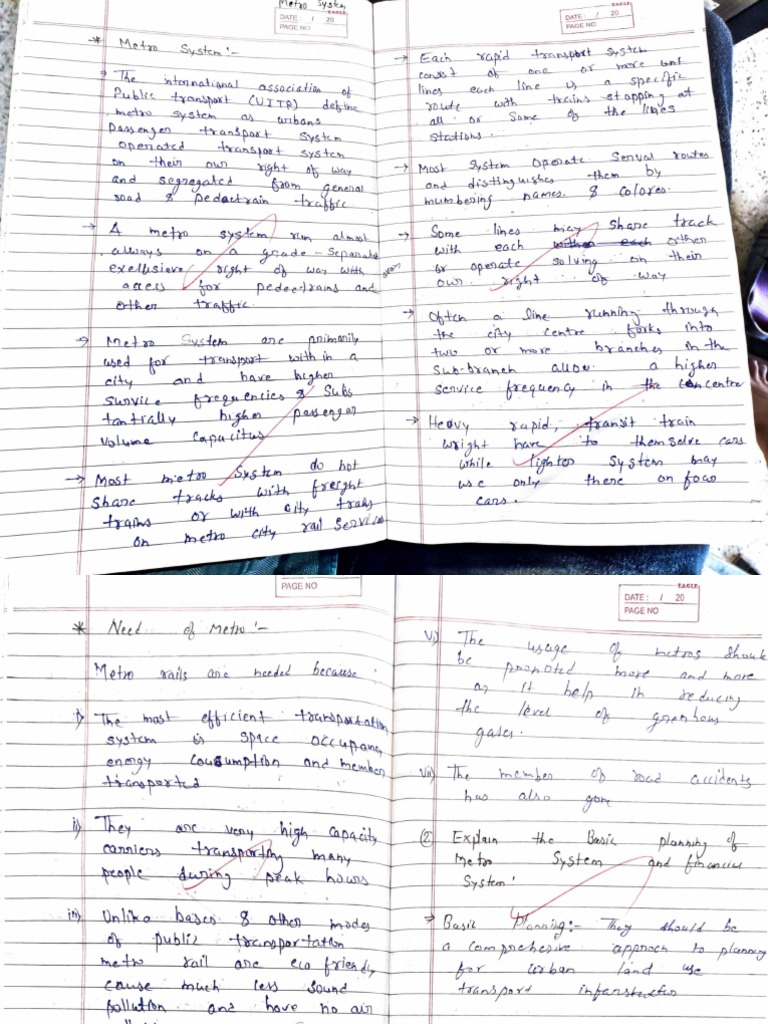 Metro System
EAGLE
DATE: / 20
PAGE NO
* Metro System :-
→ The international association of
Public transport (UITP) define
metro system as urbans
Passenger transport system
operated transport system
on their own right of way
and segregated from general
road & pedectrain traffic.
→ A metro system run almost
always on a grade - Separate
exellusieve right of way with
access for pedectrains and
other traffic.
→ Metro System are primarily
used for transport with in a
city and have higher
survice frequencies & Subs
tantially higher passenger
volume capacitus
→ Most metro System do not
Share tracks with freight
trains or with city trains
on metro city rail Services
EAGLE
DATE: / 20
PAGE NO
→ Each rapid transport system
consist of one or more
lines each line is a specific
route with trains stopping at
all or Some of the lines
stations.
→ Most System Operate Serval routes
and distinguishes them by
numbering names & colores.
→ Some lines may Share track
with each other
or operate solving on their
own right of way
→ Often a line running through
the city centre forks into
two or more branches in the
sub-branch allow a higher
service frequency in the centre
→ Heavy rapid, transit train
wright have to themselve cars
while lighter System may
use only there on four
cars.
PAGE NO
* Need of Metro :-
Metro rails are needed because
i) The most efficient transportation
system is space occupancy
energy consumption and member
transported
ii) They are very high capacity
carriers transporting many
people during peak hours
iii) Unlike bases & other modes
of public transportation
metro rail are eco friendly
cause much less sound
pollution and have no air
EAGLE
DATE: / 20
PAGE NO
vi) The usage of metros should
be promoted more and more
as it help in reducing
the level of greenhous
gases.
vii) The member of road accidents
has also gone
② Explain the Basic planning of
Metro System and financial
System:
→ Basic Planning:- They should be
a comprehesive approch to planning
for urban land use
transport infarstructus